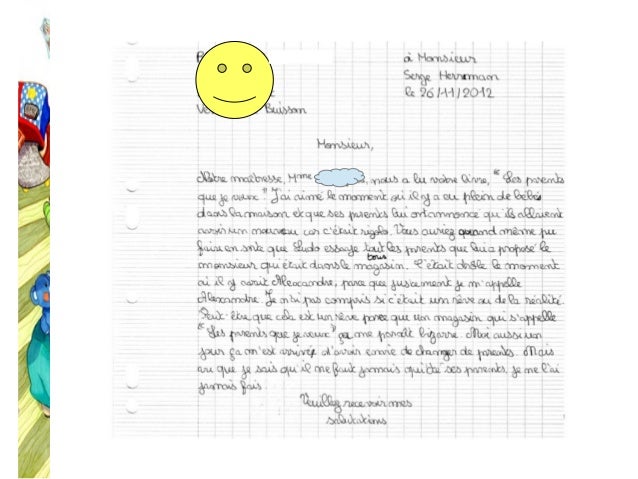 à Monsieur
Serge Herrmann
le 26/11/2012
Buisson
Monsieur,
Notre maîtresse, Mme, nous a lu votre livre, "Les parents
que je veux". J'ai aimé le moment où il y a eu plein de bébés
dans la maison et que ses parents lui ont annoncé qu'ils allaient
avoir un nouveau, car c'était rigolo. Vous auriez quand même pu
faire en sorte que Ludo essaye tout les parents que lui a proposé le
tous
monsieur qui était dans le magasin. C'était drôle le moment
où il y avait Alexandre, parce que justement je m'appelle
Alexandre. Je n'ai pas compris si c'était un rêve ou de la réalité.
Peut-être que cela est un rêve parce que un magasin qui s'appelle
"Les parents que je veux" ça me paraît bizarre. Moi aussi un
jour ça m'est arrivé d'avoir envie de changer de parents. Mais
vu que je sais qu'il ne faut jamais quitté ses parents, je ne l'ai
jamais fais.
Veuillez recevoir mes
salutations